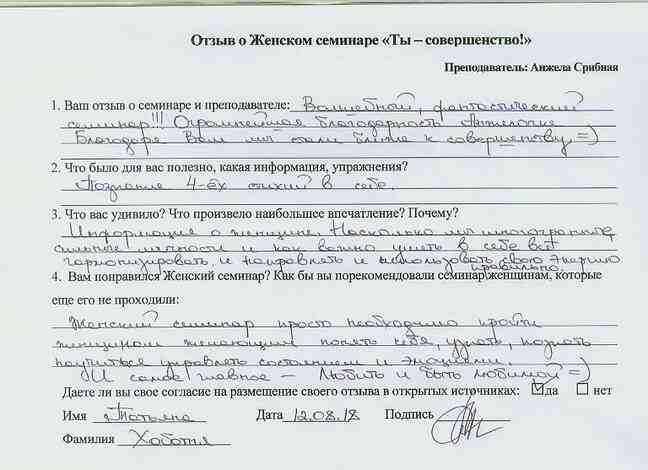 Отзыв о Женском семинаре «Ты – совершенство!»
Преподаватель: Анжела Срибная
1. Ваш отзыв о семинаре и преподавателе: Волшебный, фантастический
семинар!!! Огромнейшая благодарность Анжелочке
Благодаря Вам мы стали ближе к совершенству =)
2. Что было для вас полезно, какая информация, упражнения?
Познание 4-ёх стихий в себе.
3. Что вас удивило? Что произвело наибольшее впечатление? Почему?
Информация о женщине. Насколько мы многогранные,
сильные личности и как важно уметь в себе всё
гармонизировать и направлять и использовать свою энергию
правильно.
4. Вам понравился Женский семинар? Как бы вы порекомендовали семинар женщинам, которые
еще его не проходили:
Женский семинар просто необходимо пройти
женщинам желающим понять себя, узнать, познать
научиться управлять состоянием и эмоциями.
И самое главное – Любить и быть любимой =)
Даете ли вы свое согласие на размещение своего отзыва в открытых источниках: да нет
Имя Татьяна Дата 12.08.18 Подпись
Фамилия